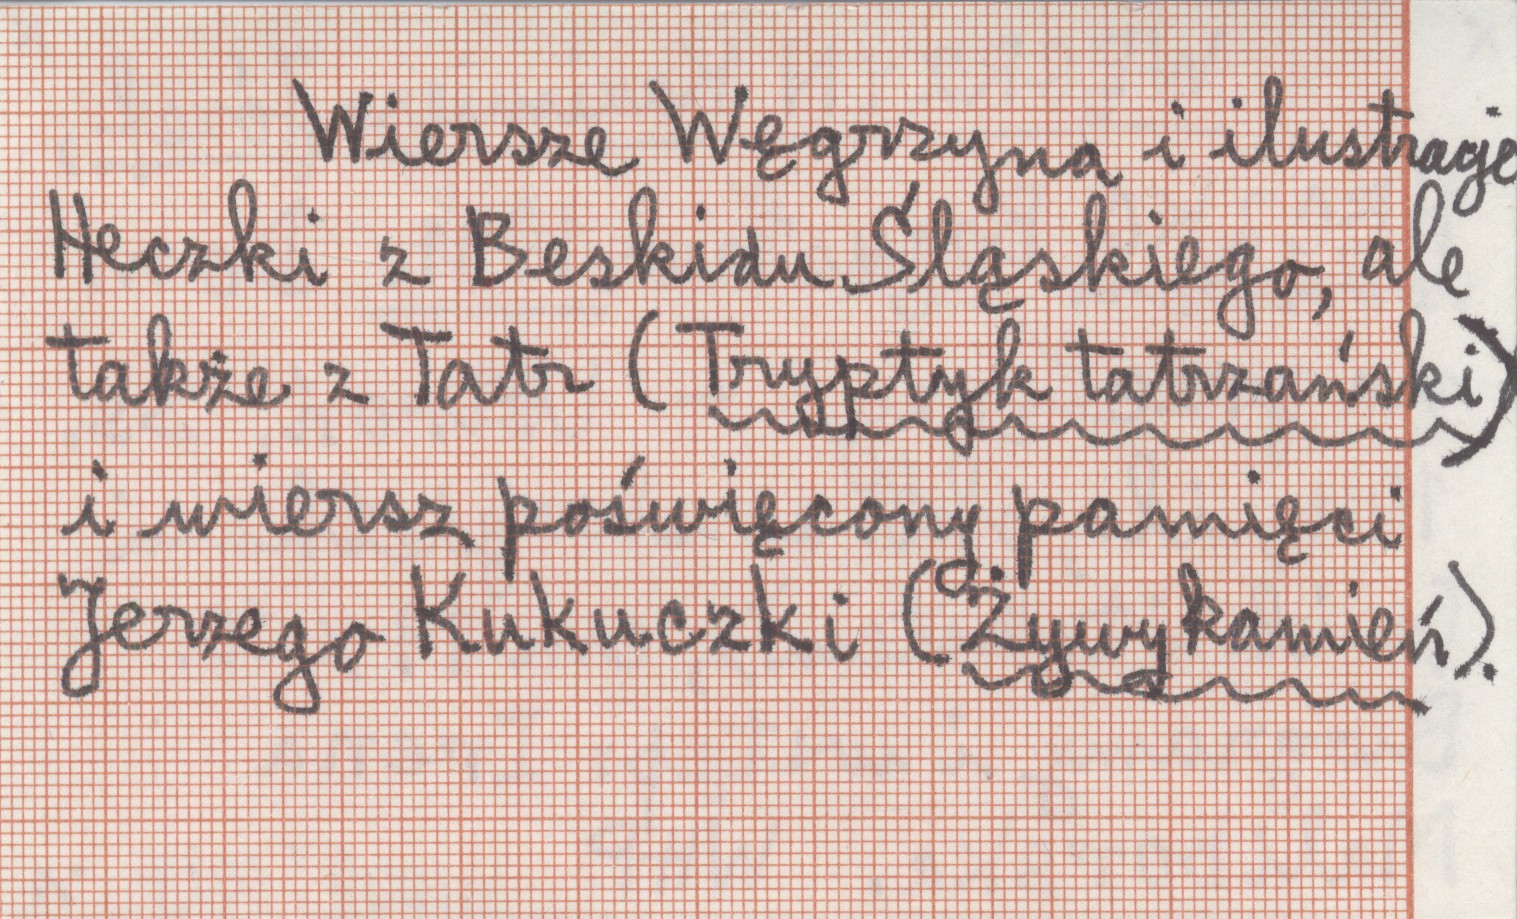 Wiersze Węgrzyna i ilustracje
Heczki z Beskidu Śląskiego, ale
także z Tatr (Tryptyk tatrzański)
i wiersz poświęcony pamięci
Jerzego Kukuczki (Żywy kamień).